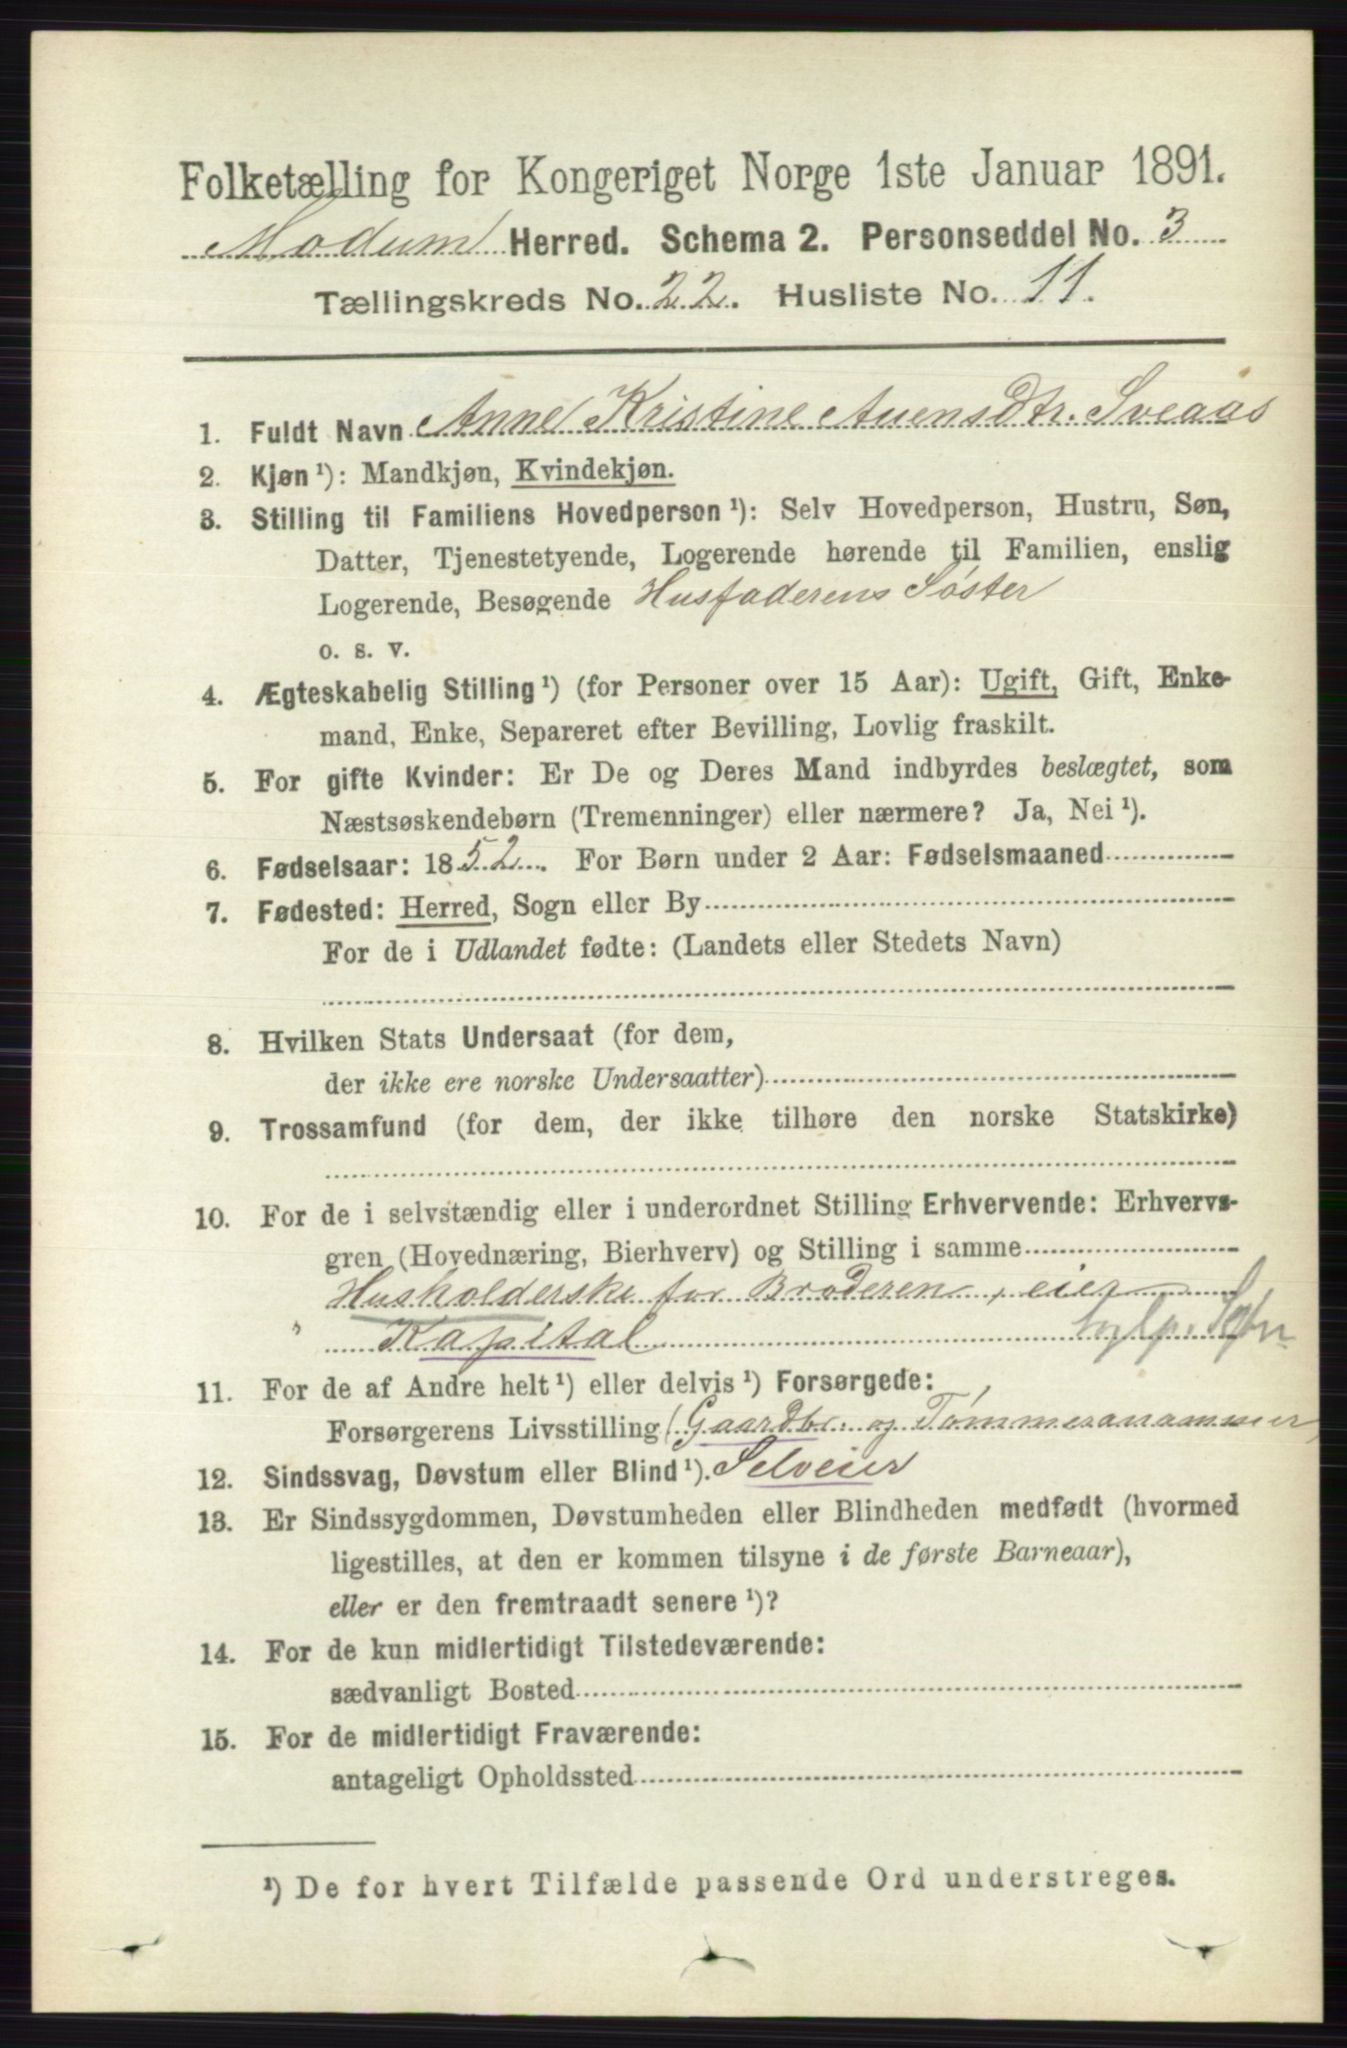 Folketælling for Kongeriget Norge 1ste Januar 1891.
Modum Herred. Schema 2. Personseddel No. 3
Tællingskreds No. 22. Husliste No. 11.
1. Fuldt Navn Anne Kristine Auensdtr. Sveaas
2. Kjøn ¹): Mandkjøn, Kvindekjøn.
3. Stilling til Familiens Hovedperson ¹): Selv Hovedperson, Hustru, Søn,
Datter, Tjenestetyende, Logerende hørende til Familien, enslig
Logerende, Besøgende Husfaderens Søster
o. s. v.
4. Ægteskabelig Stilling ¹) (for Personer over 15 Aar): Ugift, Gift, Enke-
mand, Enke, Separeret efter Bevilling, Lovlig fraskilt.
5. For gifte Kvinder: Er De og Deres Mand indbyrdes beslægtet, som
Næstsøskendebørn (Tremenninger) eller nærmere? Ja, Nei ¹).
6. Fødselsaar: 1852. For Børn under 2 Aar: Fødselsmaaned
7. Fødested: Herred, Sogn eller By
For de i Udlandet fødte: (Landets eller Stedets Navn)
8. Hvilken Stats Undersaat (for dem,
der ikke ere norske Undersaatter)
9. Trossamfund (for dem, der ikke tilhøre den norske Statskirke)
10. For de i selvstændig eller i underordnet Stilling Erhvervende: Erhvervs-
gren (Hovednæring, Bierhverv) og Stilling i samme
Husholderske for Broderen, eier
" Kapital
11. For de af Andre helt ¹) eller delvis ¹) Forsørgede:
Forsørgerens Livsstilling (Gaardbr. og Tømmeranammer)
12. Sindssvag, Døvstum eller Blind ¹). Selveier
13. Er Sindssygdommen, Døvstumheden eller Blindheden medfødt (hvormed
ligestilles, at den er kommen tilsyne i de første Barneaar),
eller er den fremtraadt senere ¹)?
14. For de kun midlertidigt Tilstedeværende:
sædvanligt Bosted
15. For de midlertidigt Fraværende:
antageligt Opholdssted
¹) De for hvert Tilfælde passende Ord understreges.